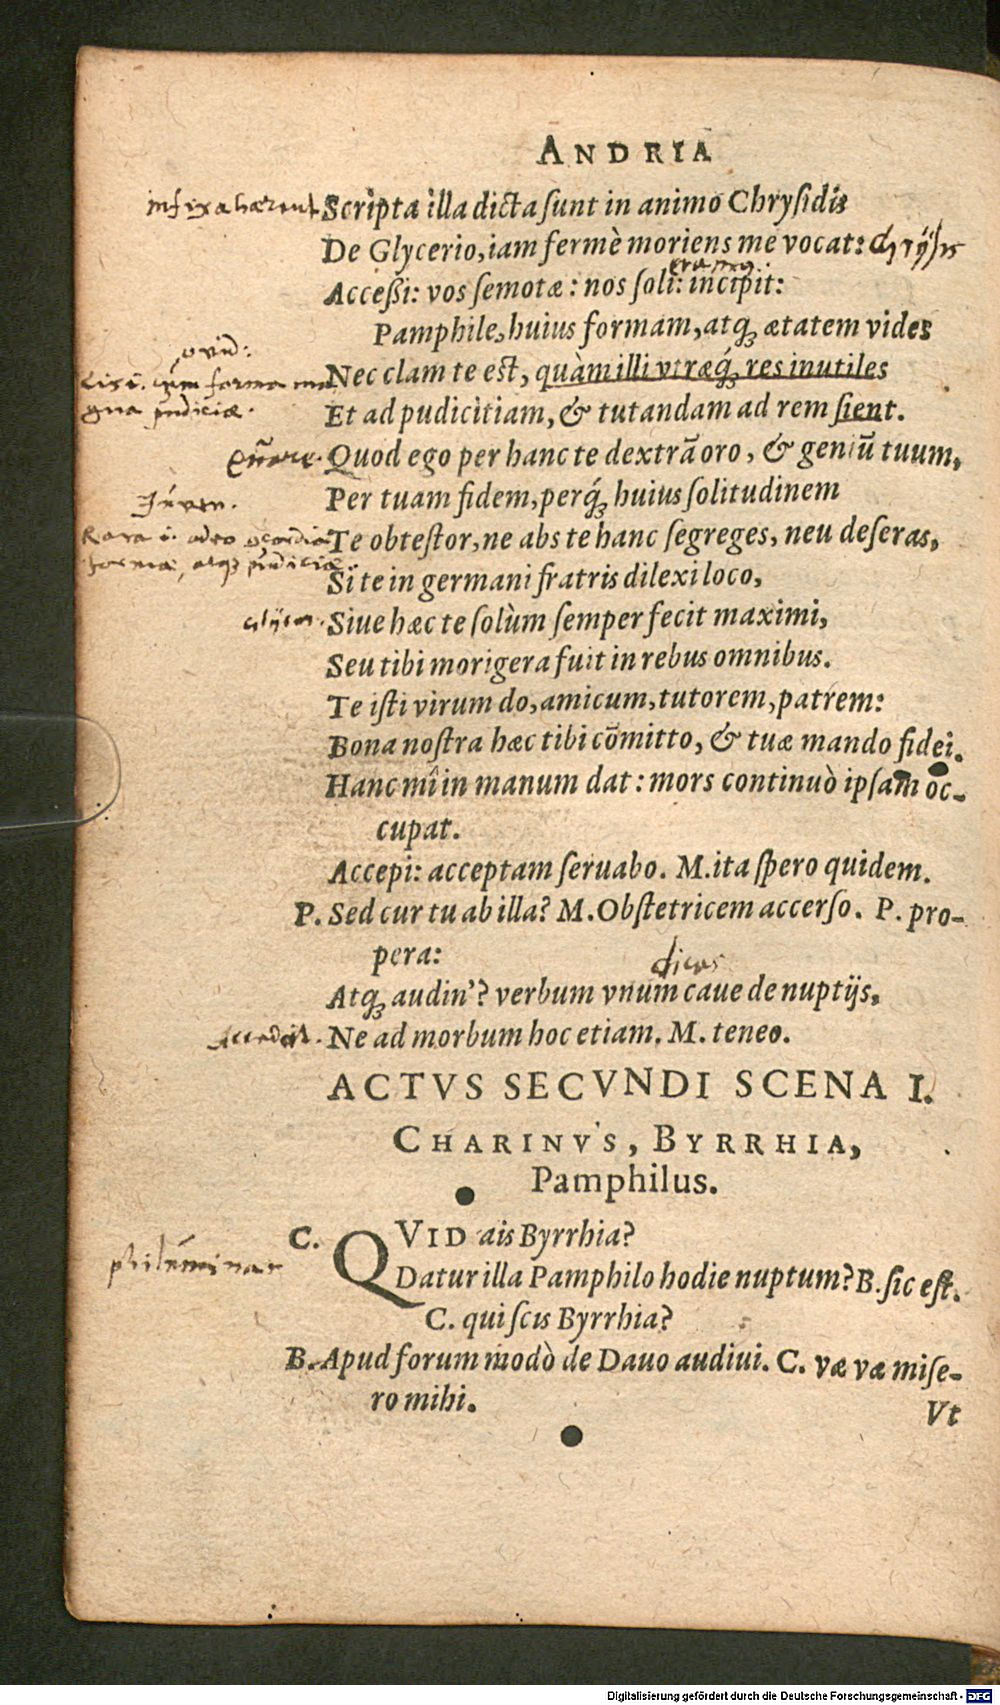 ANDRIA
infixa hærent Scripta illa dicta sunt in animo Chrysidis
De Glycerio, iam fermè moriens me vocat: Chrysis
eramus
Accessi: vos semotæ: nos soli: incipit:
Pamphile, huius formam, atq; ætatem vides
ovid:
Nec clam te est, quàm illi vtræq́; res inutiles
Lis ē. cum forma ma
gna pudiciæ.
Et ad pudicitiam, & tutandam ad rem sient.
Quod ego per hanc te dextrā oro, & geniū tuum,
Juven.
Per tuam fidem, perq́; huius solitudinem
Rara ē. adeo cōcordia
formæ, atq; pudiciciæ
Te obtestor, ne abs te hanc segreges, neu deseras,
Si te in germani fratris dilexi loco,
glycer. Siue hæc te solùm semper fecit maximi,
Seu tibi morigera fuit in rebus omnibus.
Te isti virum do, amicum, tutorem, patrem:
Bona nostra hæc tibi cōmitto, & tuæ mando fidei.
Hanc mî in manum dat: mors continuò ipsam oc-
cupat.
Accepi: acceptam seruabo. M. ita spero quidem.
P. Sed cur tu ab illa? M. Obstetricem accerso. P. pro-
pera:
dicas
Atq; audin'? verbum vnum caue de nuptijs,
Accedat. Ne ad morbum hoc etiam. M. teneo.
ACTVS SECVNDI SCENA I.
CHARINVS, BYRRHIA,
Pamphilus.
C. QVID ais Byrrhia?
philumina Datur illa Pamphilo hodie nuptum? B. sic est.
C. qui scis Byrrhia?
B. Apud forum modò de Dauo audiui. C. væ væ mise-
ro mihi.
Vt
Digitalisierung gefördert durch die Deutsche Forschungsgemeinschaft - DFG